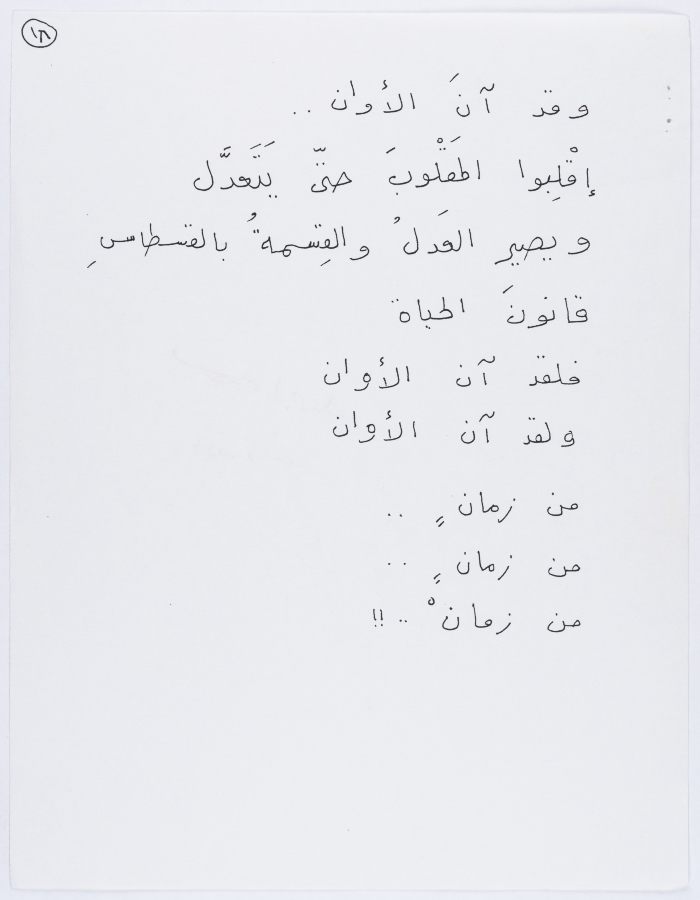 ١٨
وقد آنَ الأوان ..
إقْلِبوا المَقْلُوبَ حتّى يَتَعدَّل
ويصير العَدلُ والقِسمةُ بالقسطاسِ
قانونَ الحياة
فلقد آن الأوان
ولقد آن الأوان
من زمانٍ ..
من زمانٍ ..
من زمانْ .. !!